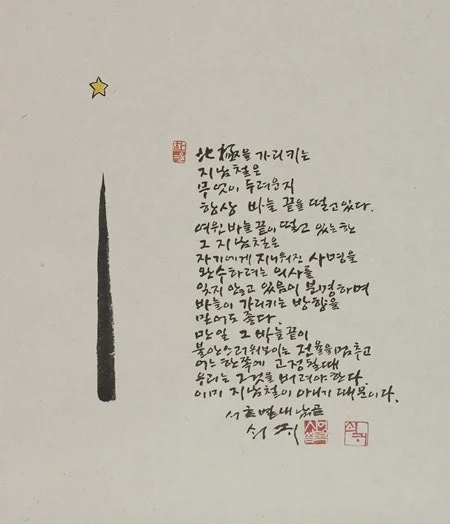 北極을 가리키는
지남철은
무엇이 두려운지
항상 바늘 끝을 떨고 있다.
여윈 바늘 끝이 떨고 있는 한
그 지남철은
자기에게 지니워진 사명을
완수하려는 의사를
잊지 않고 있음이 분명하며
바늘이 가리키는 방향을
믿어도 좋다.
만일 그 바늘 끝이
불안스러워 보이는 전율을 멈추고
어느 한쪽에 고정될 때
우리는 그것을 버려야 한다.
이미 지남철이 아니기 때문이다.
서호별내 님끝
쇠귀